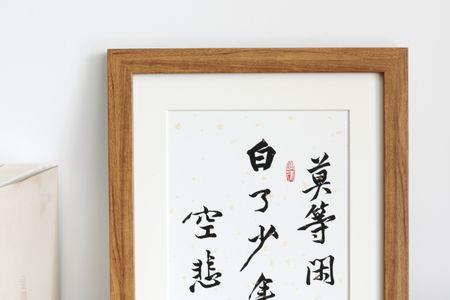 莫等闲
白了少年
空悲